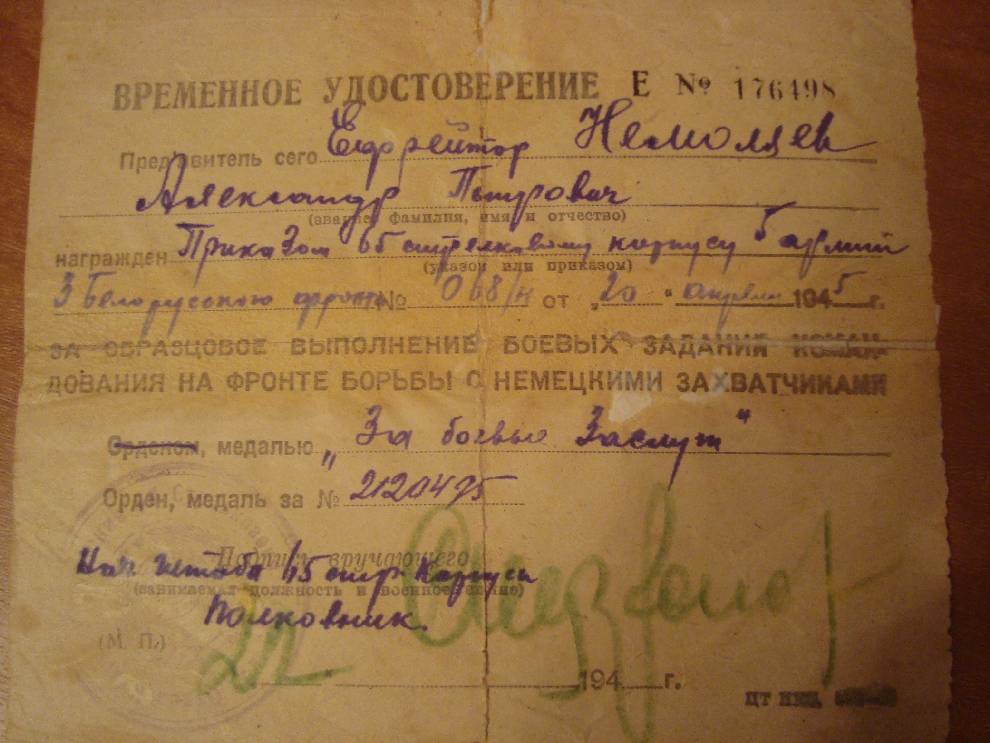 ВРЕМЕННОЕ УДОСТОВЕРЕНИЕ Е № 176498
Предъявитель сего Ефрейтор Немоляев
Александр Петрович
(звание фамилия, имя и отчество)
награжден Приказом 65 стрелковому корпусу 5 армии
(указом или приказом)
3 Белорусского фронта № 068/н от „20“ апреля 1945 г.
ЗА ОБРАЗЦОВОЕ ВЫПОЛНЕНИЕ БОЕВЫХ ЗАДАНИЙ КОМАН-
ДОВАНИЯ НА ФРОНТЕ БОРЬБЫ С НЕМЕЦКИМИ ЗАХВАТЧИКАМИ
Орденом, медалью „За боевые Заслуги"
Орден, медаль за № 2120475
Подпись вручающего
Нач штаба 65 стр. Корпуса
(занимаемая должность и военное звание)
Полковник
(М П.)
194 г.